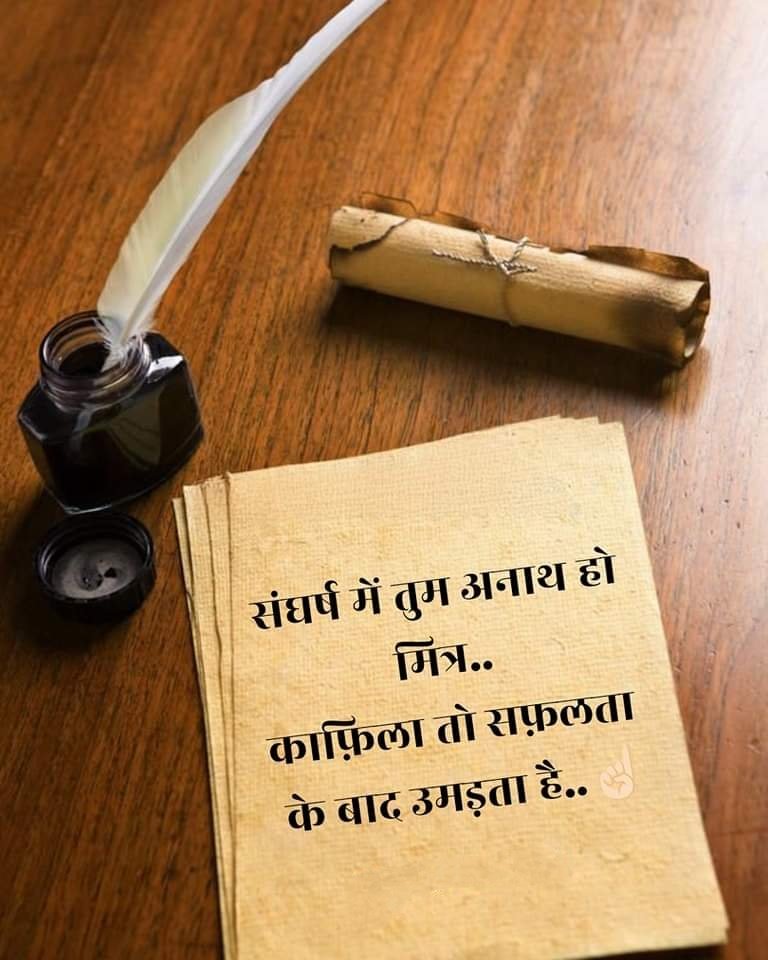 संघर्ष में तुम अनाथ हो
मित्र..
काफ़िला तो सफ़लता
के बाद उमड़ता है.. ☝🏻